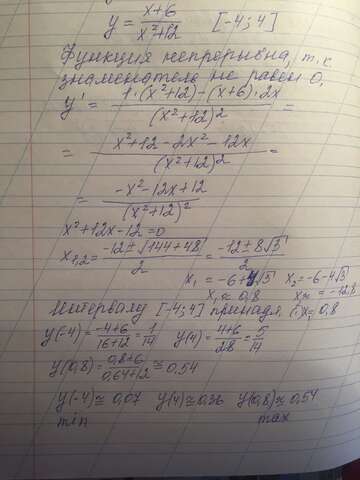 y = (x+6)/(x²+12) [-4; 4]
Функция непрерывна, т.к
знаменатель не равен 0.
y' = (1·(x²+12)-(x+6)·2x)/(x²+12)² =
= (x²+12-2x²-12x)/(x²+12)² =
= (-x²-12x+12)/(x²+12)²
x²+12x-12=0
x₁,₂ = (-12±√(144+48))/2 = (-12±8√3)/2
x₁ = -6+4√3 x₂ = -6-4√3
x₁ ≈ 0,8 x ≈ -12,8
Интервалу [-4; 4] принадл. x₁ 0,8
y(-4) = (-4+6)/(16+12) = 1/14 y(4) = (4+6)/28 = 5/14
y(0,8) = (0,8+6)/(0,64+12) ≅ 0,54
y(-4) ≅ 0,07 y(4) ≅ 0,36 y(0,8) ≅ 0,54
min max